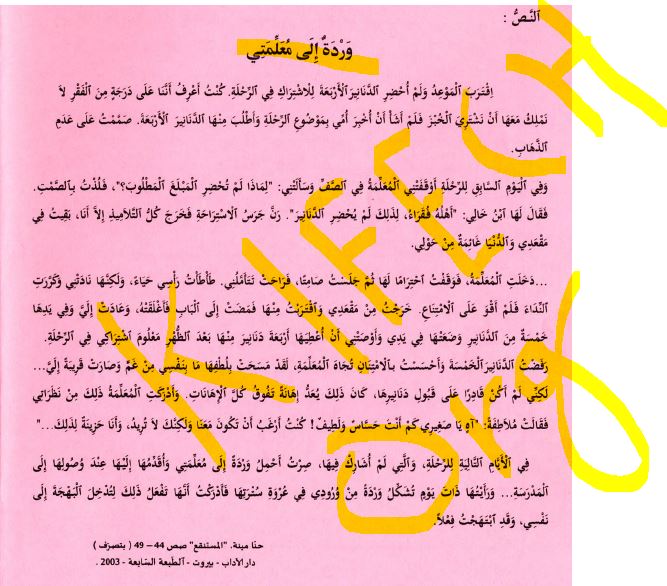 النَّصُّ :
وَرْدَةٌ إِلَى مُعَلِّمَتِي
اِقْتَرَبَ الْمَوْعِدُ وَلَمْ أُحْضِرِ الدَّنَانِيرَ الْأَرْبَعَةَ لِلْاشْتِرَاكِ فِي الرِّحْلَةِ. كُنْتُ أَعْرِفُ أَنَّنَا عَلَى دَرَجَةٍ مِنَ الْفَقْرِ لاَ
نَمْلِكُ مَعَهَا أَنْ نَشْتَرِيَ الْخُبْزَ فَلَمْ أَشَأْ أَنْ أُخْبِرَ أُمِّي بِمَوْضُوعِ الرِّحْلَةِ وَأَطْلُبَ مِنْهَا الدَّنَانِيرَ الْأَرْبَعَةَ. صَمَّمْتُ عَلَى عَدَمِ
الذَّهَابِ.
وَفِي الْيَوْمِ السَّابِقِ لِلرِّحْلَةِ أَوْقَفَتْنِي الْمُعَلِّمَةُ فِي الصَّفِّ وَسَأَلَتْنِي: "لِمَاذَا لَمْ تُحْضِرِ الْمَبْلَغَ الْمَطْلُوبَ؟"، فَلُذْتُ بِالصَّمْتِ.
فَقَالَ لَهَا ابْنُ خَالِي: "أَهْلُهُ فُقَرَاءُ، لِذَلِكَ لَمْ يُحْضِرِ الدَّنَانِيرَ". رَنَّ جَرَسُ الْاسْتِرَاحَةِ فَخَرَجَ كُلُّ التَّلاَمِيذِ إِلاَّ أَنَا، بَقِيتُ فِي
مَقْعَدِي وَالدُّنْيَا غَائِمَةٌ مِنْ حَوْلِي.
...دَخَلَتِ الْمُعَلِّمَةُ، فَوَقَفْتُ احْتِرَامًا لَهَا ثُمَّ جَلَسْتُ صَامِتًا، فَرَاحَتْ تَتَأَمَّلُنِي. طَأْطَأْتُ رَأْسِي حَيَاءً، وَلَكِنَّهَا نَادَتْنِي وَكَرَّرَتِ
النِّدَاءَ فَلَمْ أَقْوَ عَلَى الْاِمْتِنَاعِ. خَرَجْتُ مِنْ مَقْعَدِي وَاقْتَرَبْتُ مِنْهَا فَمَضَتْ إِلَى الْبَابِ فَأَغْلَقَتْهُ، وَعَادَتْ إِلَيَّ وَفِي يَدِهَا
خَمْسَةٌ مِنَ الدَّنَانِيرِ وَضَعَتْهَا فِي يَدِي وَأَوْصَتْنِي أَنْ أُعْطِيَهَا أَرْبَعَةَ دَنَانِيرَ مِنْهَا بَعْدَ الظُّهْرِ مَعْلُومَ اشْتِرَاكِي فِي الرِّحْلَةِ.
رَفَضْتُ الدَّنَانِيرَ الْخَمْسَةَ وَأَحْسَسْتُ بِالْاِمْتِنَانِ تُجَاهَ الْمُعَلِّمَةِ، لَقَدْ مَسَحَتْ بِلُطْفِهَا مَا بِنَفْسِي مِنْ غَمٍّ وَصَارَتْ قَرِيبَةً إِلَيَّ...
لَكِنِّي لَمْ أَكُنْ قَادِرًا عَلَى قَبُولِ دَنَانِيرِهَا، كَانَ ذَلِكَ يُعَدُّ إِهَانَةً تَفُوقُ كُلَّ الْإِهَانَاتِ. وَأَدْرَكَتِ الْمُعَلِّمَةُ ذَلِكَ مِنْ نَظَرَاتِي
فَقَالَتْ مُلاَطِفَةً: "آهٍ يَا صَغِيرِي كَمْ أَنْتَ حَسَّاسٌ وَلَطِيفٌ! كُنْتُ أَرْغَبُ أَنْ تَكُونَ مَعَنَا وَلَكِنَّكَ لاَ تُرِيدُ، وَأَنَا حَزِينَةٌ لِذَلِكَ..."
فِي الْأَيَّامِ التَّالِيَةِ لِلرِّحْلَةِ، وَالَّتِي لَمْ أُشَارِكْ فِيهَا، صِرْتُ أَحْمِلُ وَرْدَةً إِلَى مُعَلِّمَتِي وَأُقَدِّمُهَا إِلَيْهَا عِنْدَ وُصُولِهَا إِلَى
الْمَدْرَسَةِ... وَرَأَيْتُهَا ذَاتَ يَوْمٍ تَشْكُلُ وَرْدَةً مِنْ وُرُودِي فِي عُرْوَةِ سُتْرَتِهَا فَأَدْرَكْتُ أَنَّهَا تَفْعَلُ ذَلِكَ لِتُدْخِلَ الْبَهْجَةَ إِلَى
نَفْسِي، وَقَدِ ابْتَهَجْتُ فِعْلاً.
حنّا مينة. "المستنقع" صص 44 – 49 ( بتصرّف )
دار الآداب - بيروت - الطّبعة السّابعة - 2003 .
KIFECH
Org